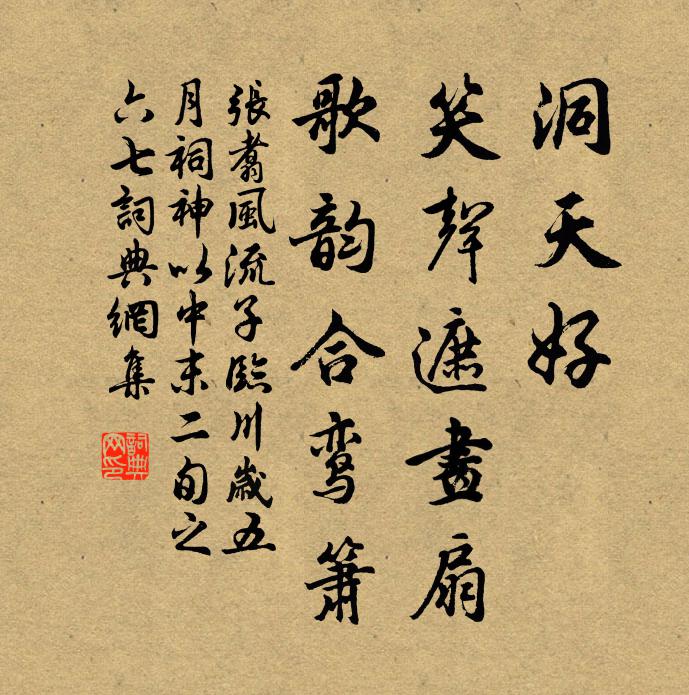 洞天好
笑聲遮畫扇
歌韵合鸾箫
張翥風流子臨川歲五
月祠神以中末二旬之
六七詞典網集
詞典网印